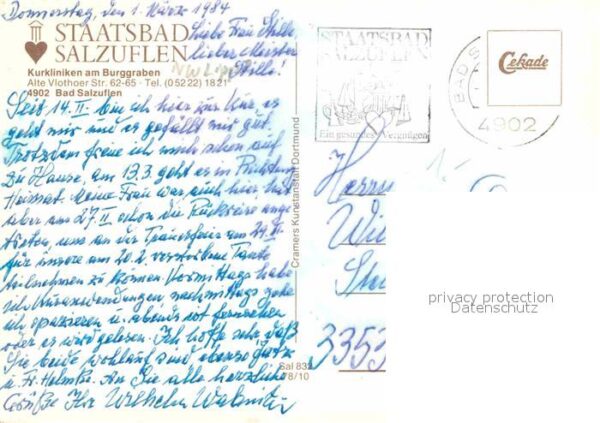 Donnerstag, den 1. März 1984
Liebe Frau Stille,
lieber Meister
Stille!
STAATSBAD
SALZUFLEN
Kurkliniken am Burggraben
Alte Vlothoer Str. 62-65 · Tel. (05222) 1821
4902 Bad Salzuflen
Seit 14.II. bin ich hier zur Kur, es
geht mir und es gefällt mir gut
Trotzdem freue ich mich schon auf
Zu Hause, am 13.3. geht es in Richtung
Heimat. Meine Frau war auch hier, hat
aber am 27.II. schon die Rückreise ange-
treten, um an der Trauerfeier am
für unsere am 20.2. verstorbene Tante
teilnehmen zu können. Vormittags habe
ich Kuranwendungen, nachmittags gehe
ich spazieren u. abends ferngesehen
oder es wird gelesen. Ich hoffe sehr, daß
Sie beide wohlauf sind ebenso
u. Fr. An Sie alle herzliche
Grüße Ihr Wilhelm
Cramers Kunstanstalt Dortmund
Sal 832
78/10
STAATSBAD
SALZUFLEN
Ein gesundes Vergnügen
BAD S
4902
Cekade
Herrn
3353
privacy protection
Datenschutz